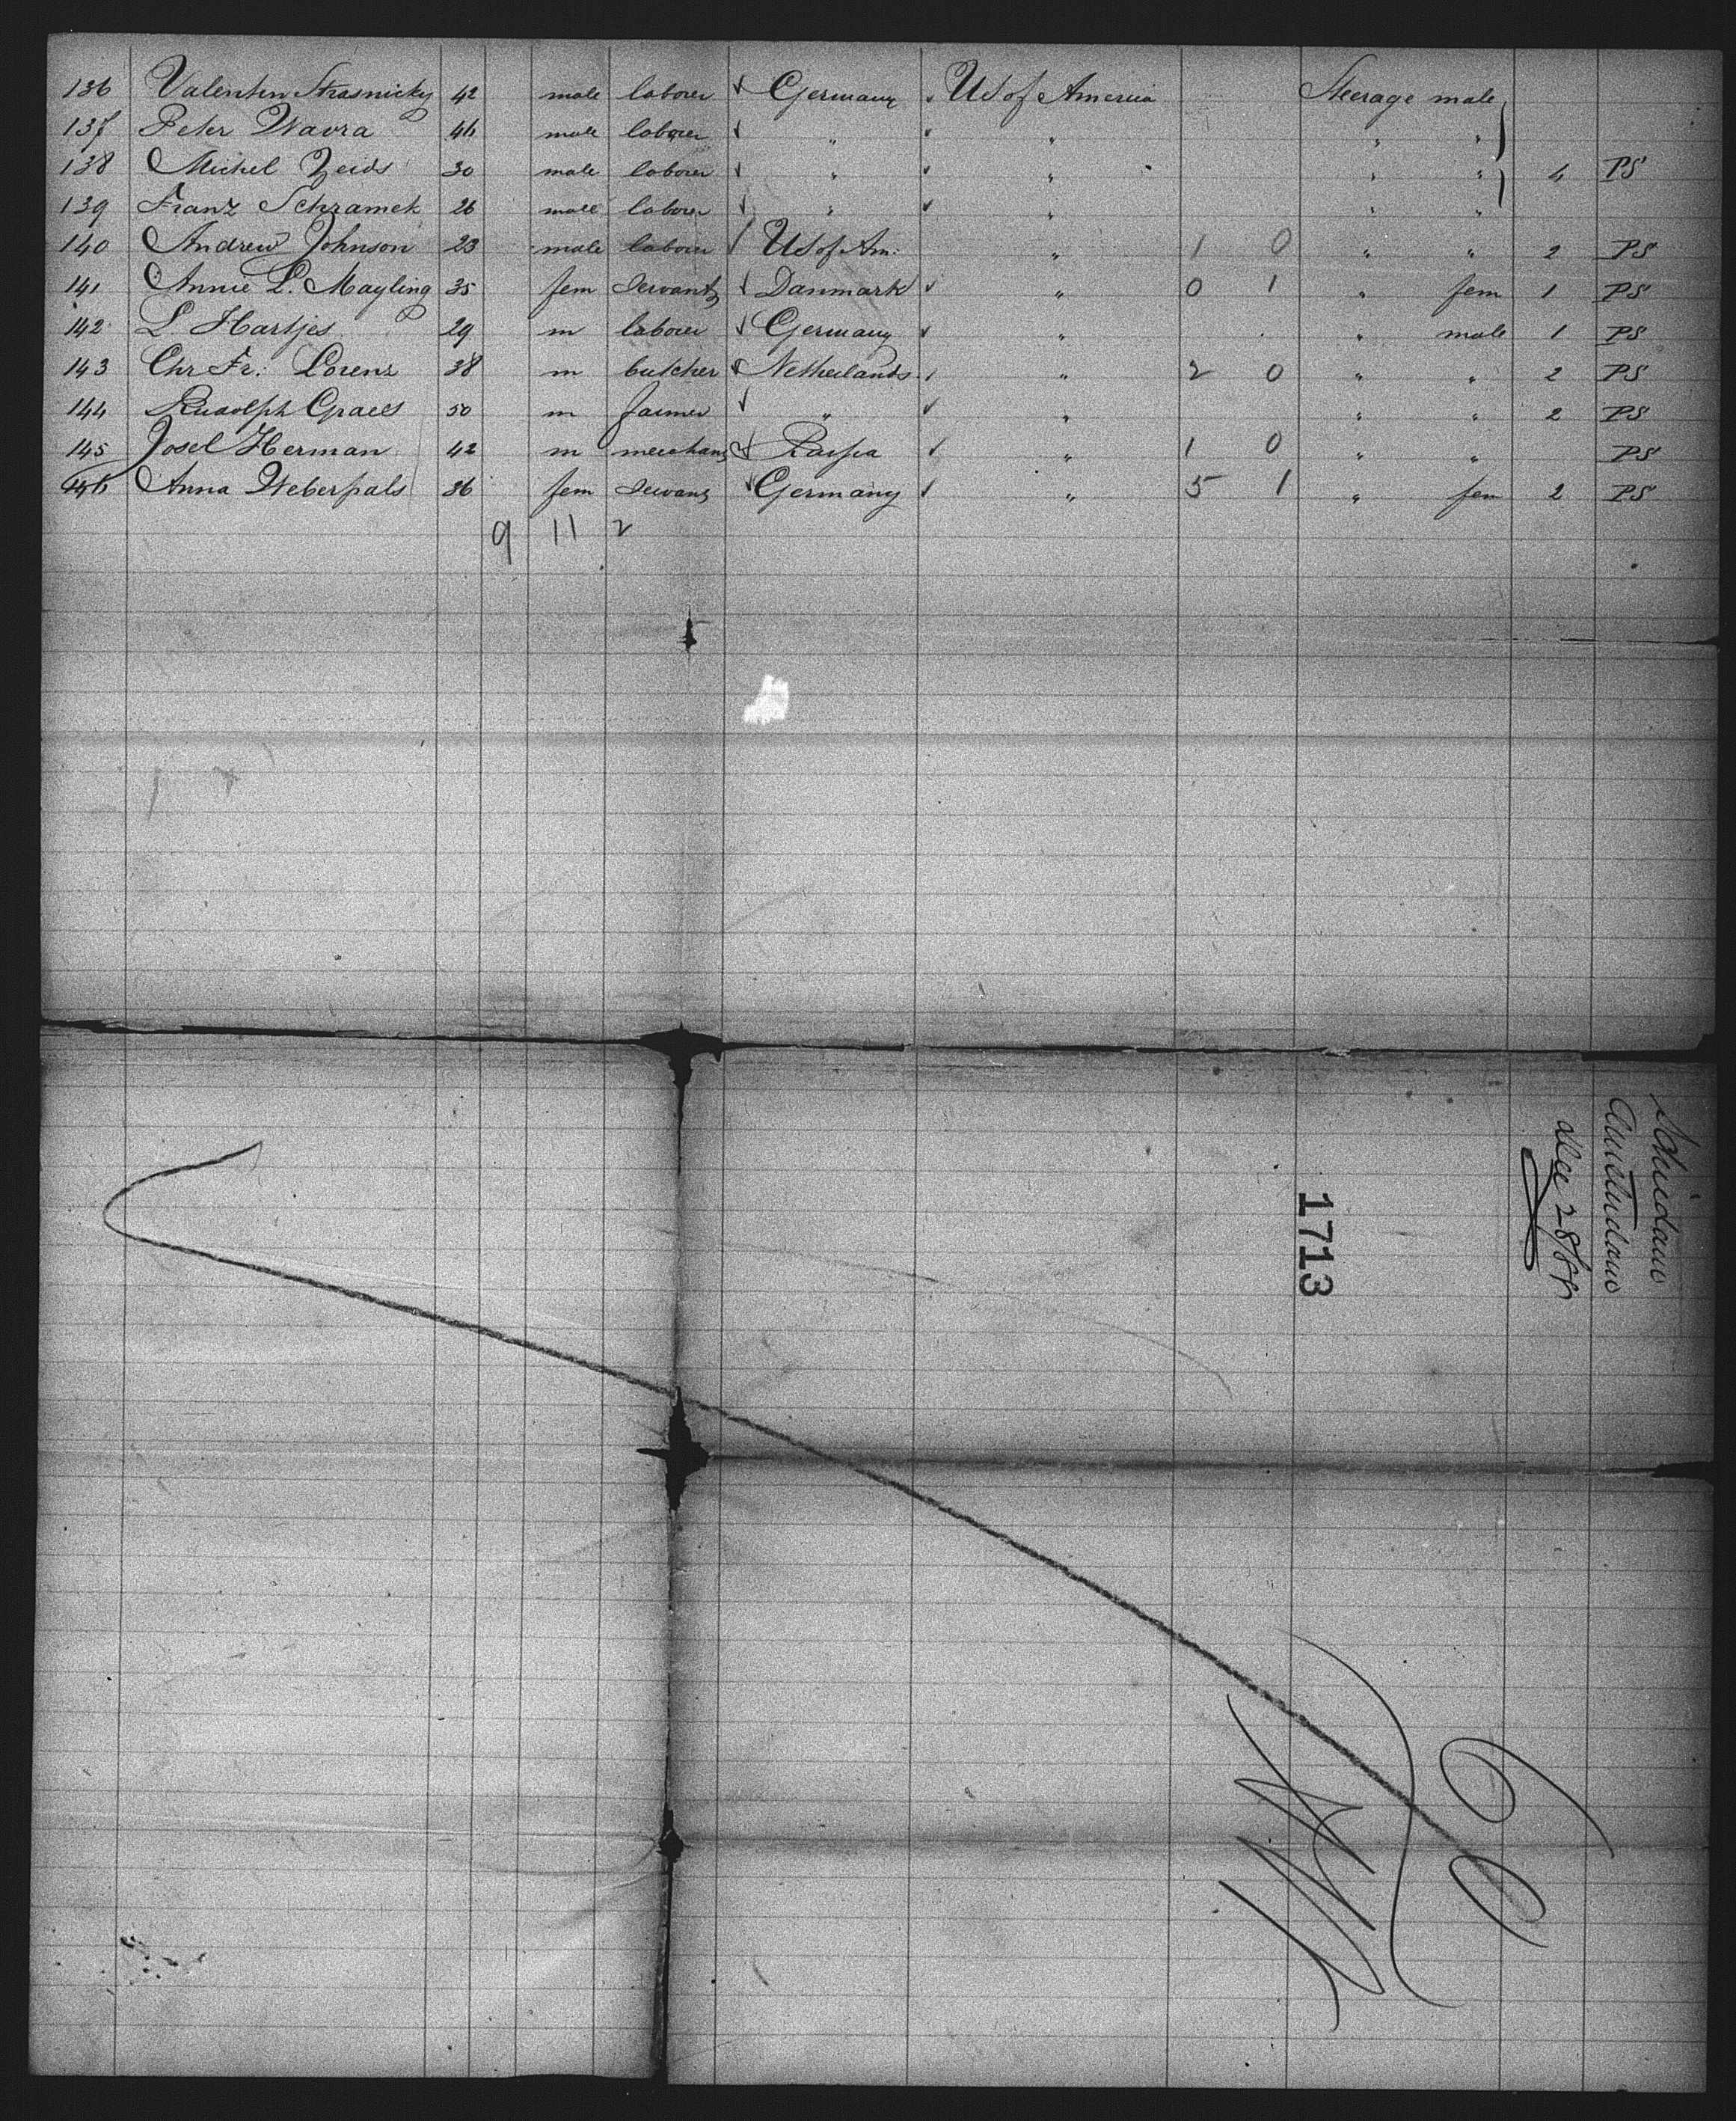 136 Valentin Strasnicky 42 male laborer ✓ Germany ✓ US of America Steerage male
137 Peter Wavra 46 male laborer ✓ " ✓ " " "
138 Michel Zeids 30 male laborer ✓ " ✓ " " " 4 PS
139 Franz Schramek 26 male laborer ✓ " ✓ " " "
140 Andrew Johnson 23 male laborer ✓ US of Am. " 1 0 " " 2 PS
141 Annie L. Mayling 35 fem Servant ✓ Danmark ✓ " 0 1 " fem 1 PS
142 L. Hartjes 29 m laborer ✓ Germany ✓ " " male 1 PS
143 Chr Fr. Lorenz 38 m butcher ✓ Netherlands ✓ " 2 0 " " 2 PS
144 Rudolph 50 m farmer ✓ " ✓ " " " 2 PS
145 Josel Herman 42 m merchant ✓ ✓ " 1 0 " " PS
146 Anna Weberpals 36 fem Servant ✓ Germany ✓ " 5 1 " fem 2 PS
9 11 2
Schiedam
Amsterdam
Dec 28/88
1713